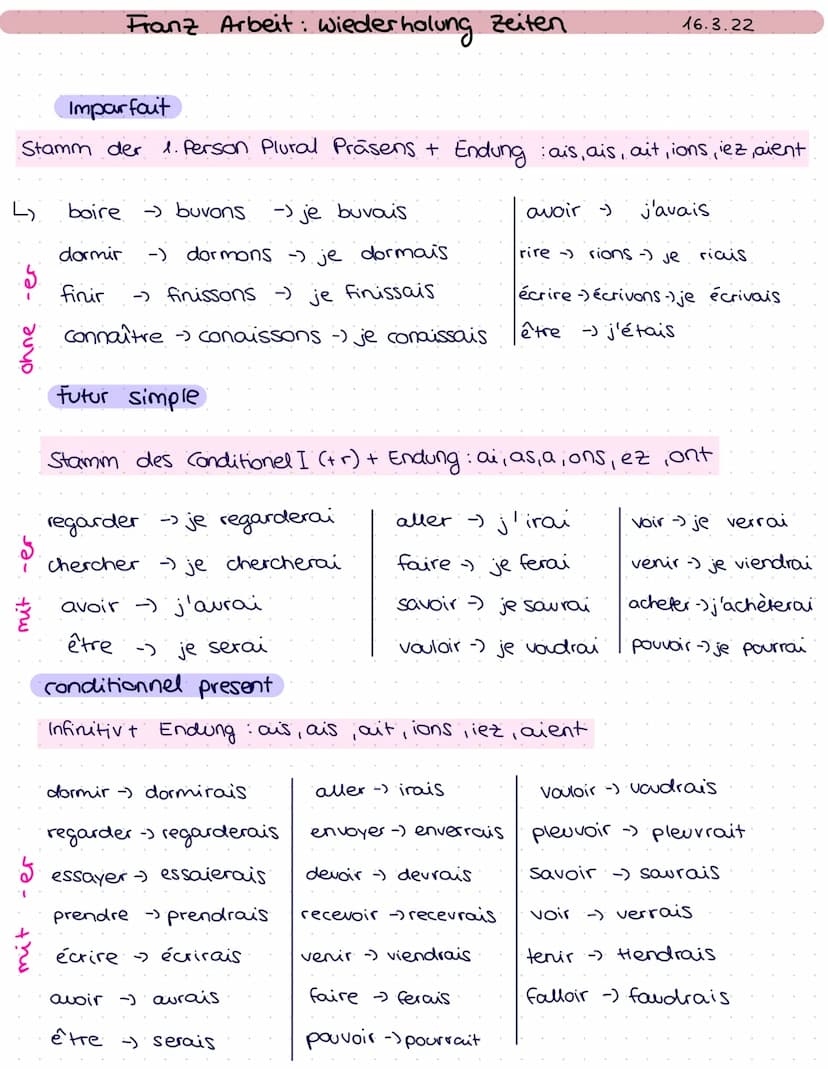 Franz Arbeit: Wiederholung Zeiten 16.3.22
Imparfait
Stamm der 1. Person Plural Präsens + Endung: ais, ais, ait, ions, iez, aient
ohne -er
↳ boire → buvons → je buvais
dormir → dormons → je dormais
finir → finissons → je finissais
connaître → conaissons → je conaissais
avoir → j'avais
rire → rions → je riais
écrire → écrivons → je écrivais
être → j'étais
Futur simple
Stamm des Conditionel I (+r) + Endung: ai, as, a, ons, ez, ont
mit -er
regarder → je regarderai
chercher → je chercherai
avoir → j'aurai
être → je serai
aller → j'irai
faire → je ferai
savoir → je saurai
vouloir → je voudrai
voir → je verrai
venir → je viendrai
acheter → j'achèterai
pouvoir → je pourrai
conditionnel present
Infinitiv + Endung: ais, ais, ait, ions, iez, aient
mit -er
dormir → dormirais
regarder → regarderais
essayer → essaierais
prendre → prendrais
écrire → écrirais
avoir → aurais
être → serais
aller → irais
envoyer → enverrais
devoir → devrais
recevoir → recevrais
venir → viendrais
faire → ferais
pouvoir → pourrait
vouloir → voudrais
pleuvoir → pleuvrait
savoir → saurais
voir → verrais
tenir → tiendrais
falloir → faudrais